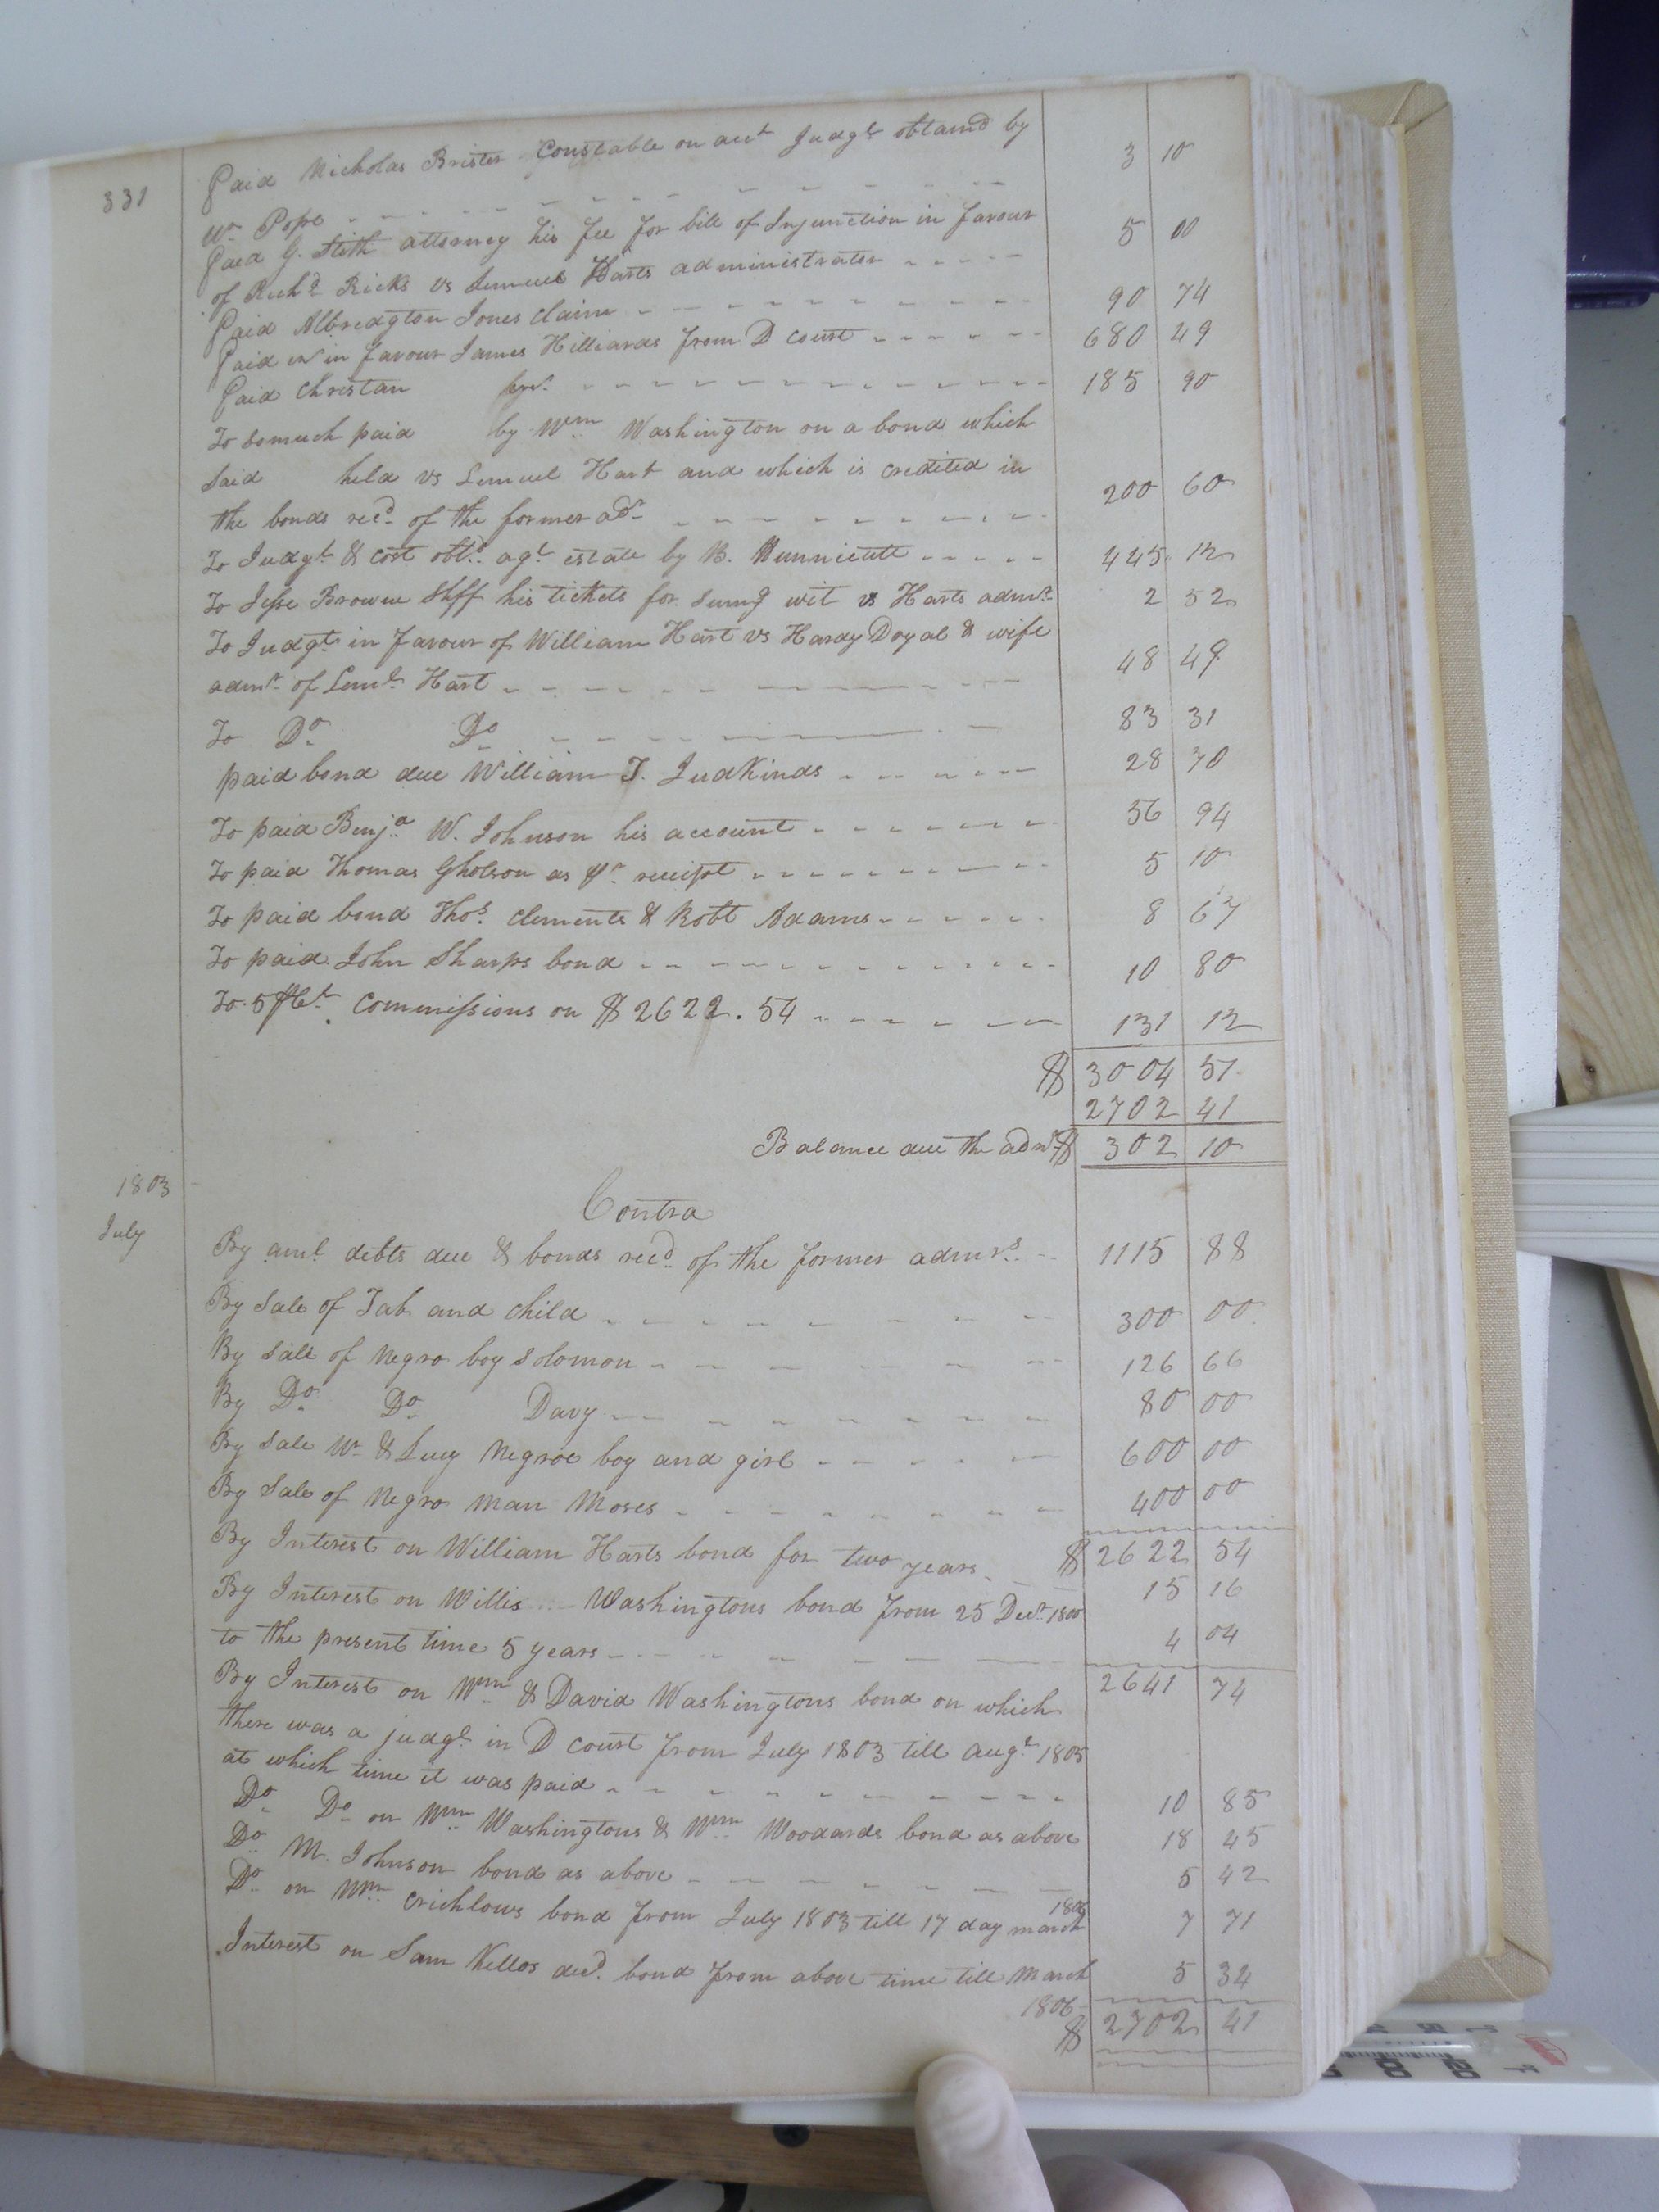 331
Paid Nicholas Brister Constable on acct Judgt obtaind by
Wm Pope 3 10
Paid G. Stith attorney his fee for bill of Injunction in favour
of Richd Ricks vs Lemuel Harts administrator 5 00
Paid Albredgton Jones claim 90 74
Paid in favour James Hilliards from D court 680 49
Paid Christan 185 90
To somuch paid by Wm Washington on a bond which
said held vs Lemuel Hart and which is credited in
the bonds recd of the former adr 200 60
To Judgt & cost obtd agt estate by B. Hunnicutt 445 12
To Jesse Browne Shff his tickets for sumg wit vs Harts admr 2 52
To Judgt in favour of William Hart vs Hardy Doyal & wife
admr of Leml Hart 48 49
To Do Do 83 31
paid bond due William J. Judkinds 28 70
To paid Benja W. Johnson his account 56 94
To paid Thomas Gholson as pr receipt 5 10
To paid bond Thos Clements & Robt Adams 8 67
To paid John Sharps bond 10 80
To 5 pCt Commissions on $2622.54 131 12
$ 3004 51
2702 41
Balance due the admr $ 302 10
1803
July
Contra
By amt debts due & bonds recd of the former admrs 1115 88
By Sale of Tab and child 300 00
By Sale of Negro boy Solomon 126 66
By Do Do Davy 80 00
By Sale Wm & Lucy Negroe boy and girl 600 00
By Sale of Negro man Moses 400 00
$ 2622 54
By Interest on William Harts bond for two years 15 16
By Interest on Willis Washingtons bond from 25 Decr 1800
to the present time 5 years 4 04
2641 74
By Interest on Wm & David Washingtons bond on which
there was a judgt in D court from July 1803 till augt 1805
at which time it was paid 10 85
Do Do on Wm Washingtons & Wm Woodards bond as above 18 45
Do M. Johnson bond as above 5 42
Do on Wm Crichlows bond from July 1803 till 17 day march 1806 7 71
Interest on Sam Kellos decd bond from above time till March
1806 5 34
$ 2702 41